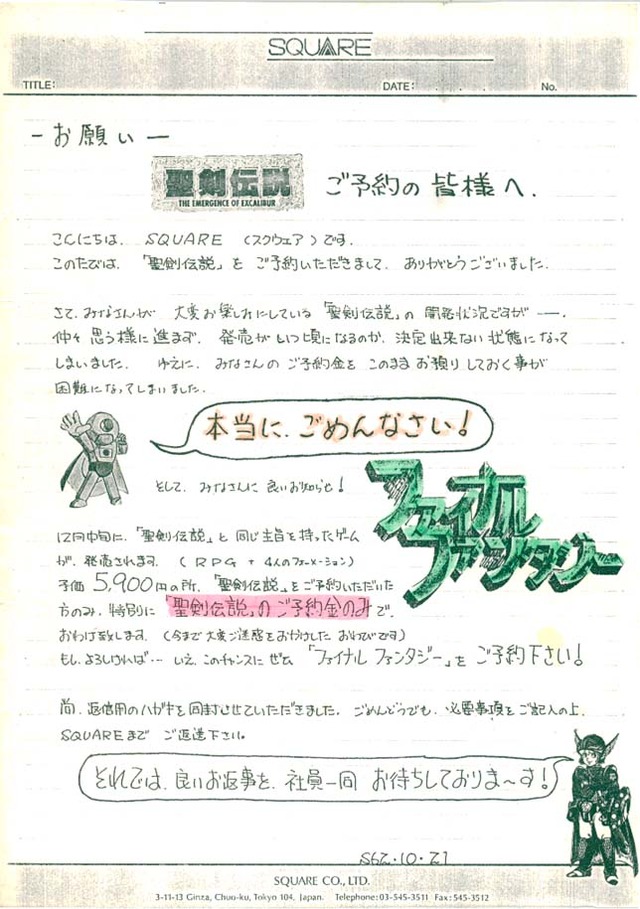 SQUARE
TITLE: DATE: . . . No.
ーお願いー
聖剣伝説 ご予約の皆様へ.
THE EMERGENCE OF EXCALIBUR
こんにちは. SQUARE (スクウェア)です.
このたびは.「聖剣伝説」を ご予約いただきまして. ありがとうございました.
さて. みなさんが 大変お楽しみにしている「聖剣伝説」の 開発状況ですが ー.
仲々 思う様に進まず. 発売がいつ頃になるのか. 決定出来ない状態になって
しまいました. ゆえに. みなさんの ご予約金を このまま お預りしておく事が
困難になってしまいました.
本当に.ごめんなさい!
そして. みなさんに 良いお知らせ!
ファイナル
ファンタジー
12月中旬に.「聖剣伝説」と同じ主旨を持ったゲーム
が. 発売されます. (RPG + 4人のフォーメーション)
予価 5,900円の所.「聖剣伝説」を ご予約いただいた
方のみ. 特別に「聖剣伝説」のご予約金のみで.
おわけ致します. (今まで大変ご迷惑をおかけした おわびです)
もし. よろしければ… いえ. このチャンスに ぜひ 「ファイナル ファンタジー」を ご予約下さい!
尚. 返信用のハガキを同封させていただきました. ごめんどうでも. 必要事項をご記入の上.
SQUAREまで ご返送下さい.
それでは. 良いお返事を. 社員一同 お待ちしておりま〜す!
S62.10.21
SQUARE CO., LTD.
3-11-13 Ginza, Chuo-ku, Tokyo 104, Japan. Telephone: 03-545-3511 Fax: 545-3512